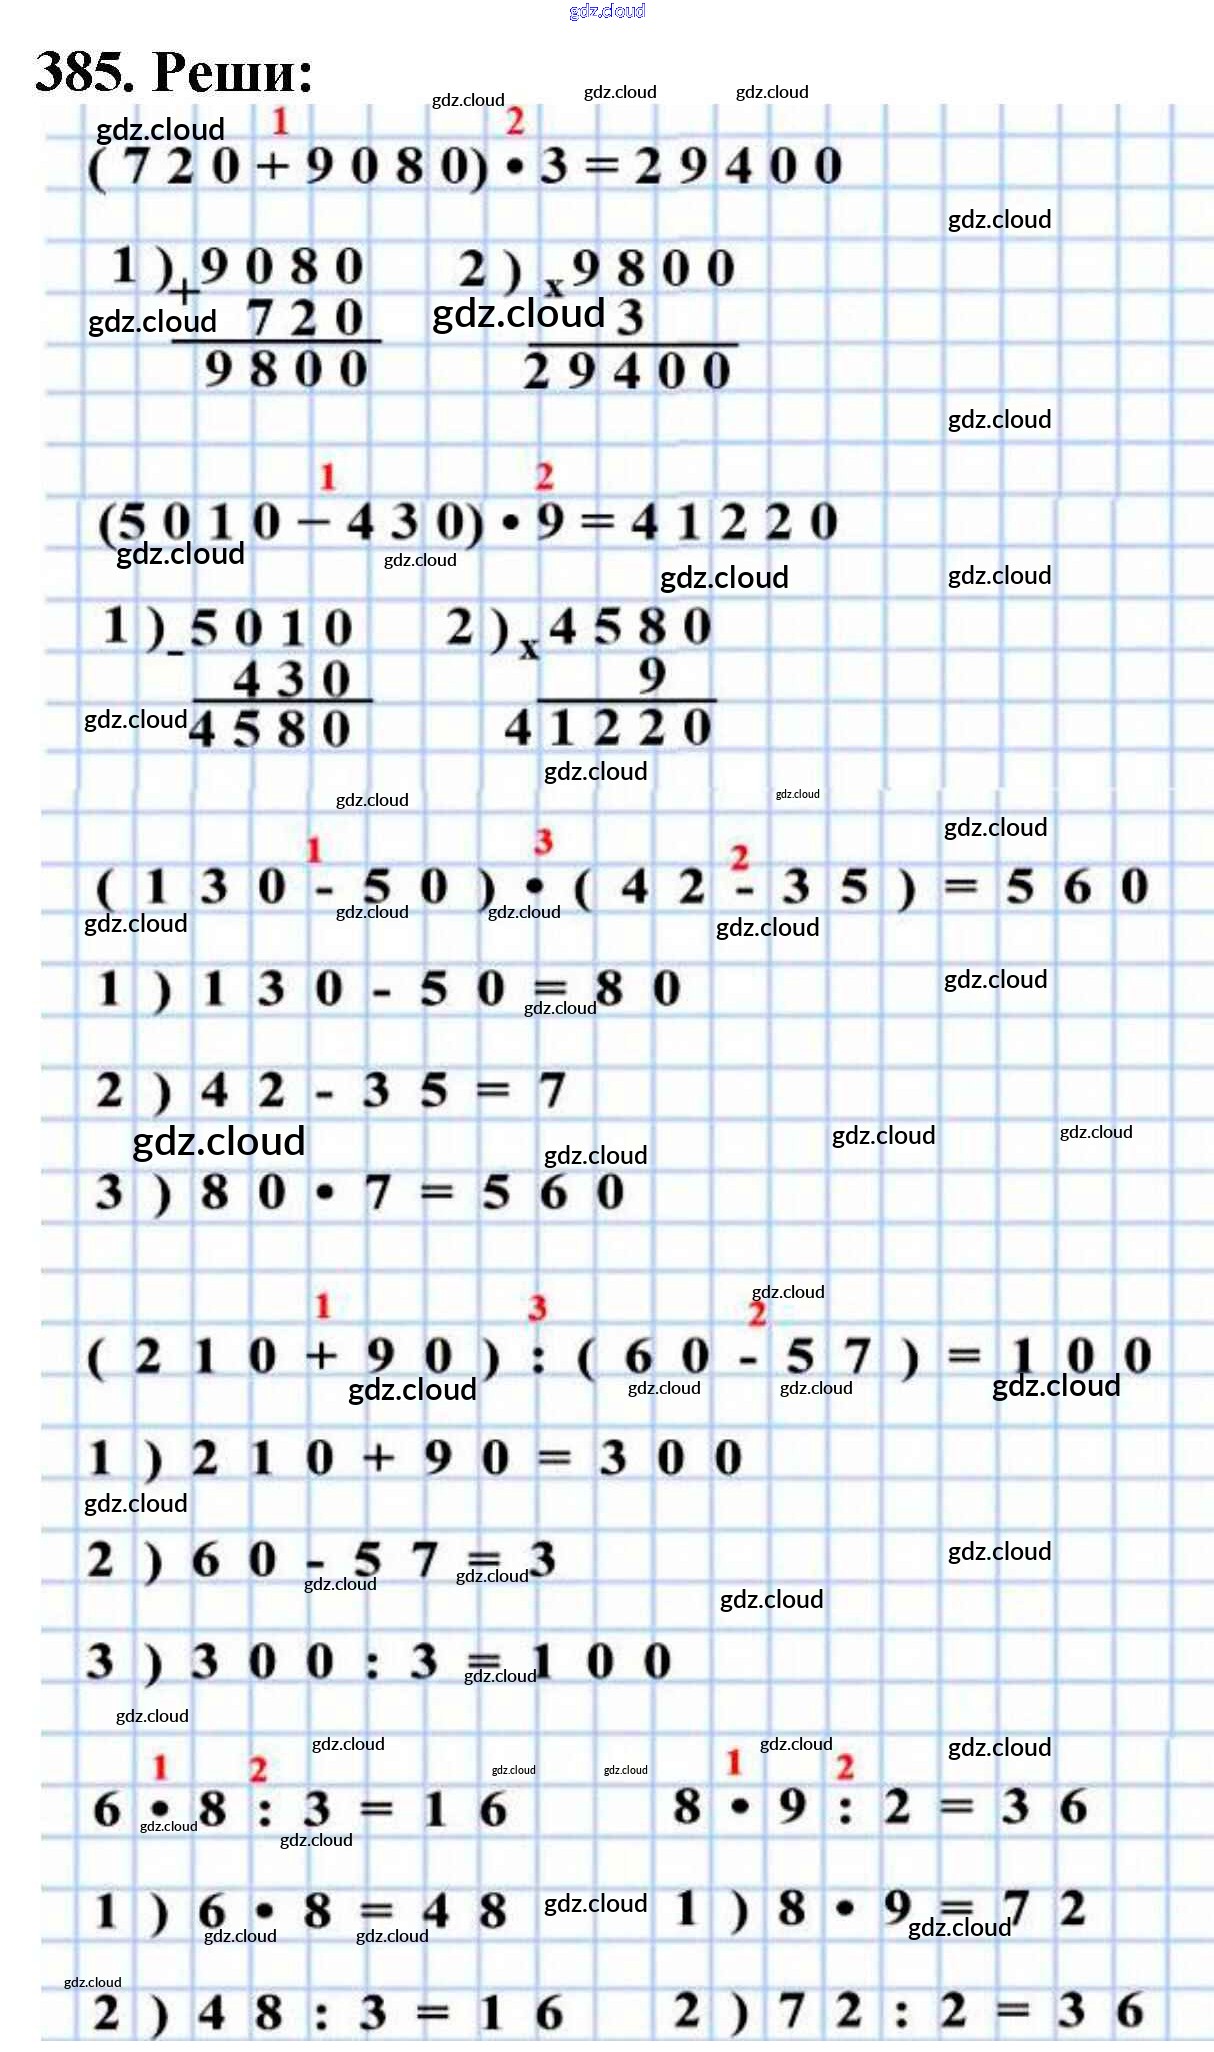 gdz.cloud
385. Реши:
gdz.cloud gdz.cloud gdz.cloud
gdz.cloud 1 2
(720+9080)•3=29400
gdz.cloud
1) 9080 2) x9800
+
gdz.cloud 720 gdz.cloud 3
9800 29400
gdz.cloud
1 2
(5010−430)•9=41220
gdz.cloud gdz.cloud gdz.cloud gdz.cloud
1)-5010 2)x4580
430 9
gdz.cloud 4580 41220
gdz.cloud
gdz.cloud gdz.cloud
gdz.cloud
1 3 2
(130-50)•(42-35)=560
gdz.cloud gdz.cloud gdz.cloud gdz.cloud
1)130-50=80 gdz.cloud
gdz.cloud
2)42-35=7
gdz.cloud gdz.cloud gdz.cloud gdz.cloud
3)80•7=560
gdz.cloud
1 3 2
(210+90):(60-57)=100
gdz.cloud gdz.cloud gdz.cloud gdz.cloud
1)210+90=300
gdz.cloud
2)60-57=3 gdz.cloud
gdz.cloud gdz.cloud gdz.cloud
3)300:3=100
gdz.cloud
gdz.cloud
gdz.cloud gdz.cloud gdz.cloud
1 2 gdz.cloud gdz.cloud 1 2
6•8:3=16 8•9:2=36
gdz.cloud gdz.cloud
1)6•8=48 gdz.cloud 1)8•9=72
gdz.cloud gdz.cloud gdz.cloud
gdz.cloud
2)48:3=16 2)72:2=36